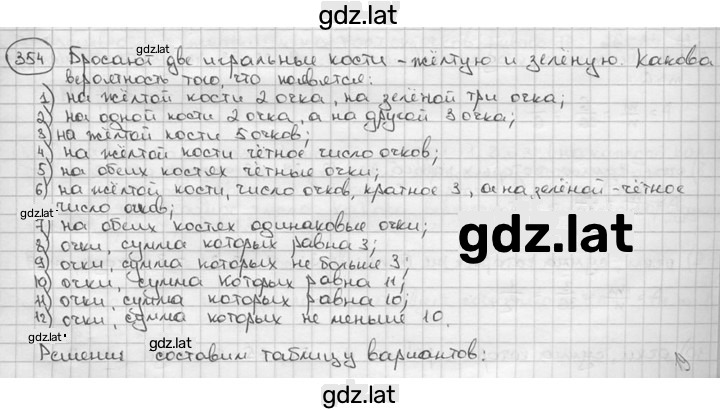 gdz.lat
354 Бросают две игральные кости - жёлтую и зелёную. Какова
gdz.lat
вероятность того, что появятся:
1) на жёлтой кости 2 очка, на зелёной три очка;
2) на одной кости 2 очка, а на другой 3 очка;
3) на жёлтой кости 5 очков;
4) на жёлтой кости чётное число очков;
5) на обеих костях чётные очки;
6) на жёлтой кости, число очков, кратное 3, а на зелёной - чётное
gdz.lat
gdz.lat
число очков;
7) на обеих костях одинаковые очки;
gdz.lat
8) очки, сумма которых равна 3;
9) очки, сумма которых не больше 3;
10) очки, сумма которых равна 11;
11) очки, сумма которых равна 10;
12) очки, сумма которых не меньше 10.
gdz.lat
gdz.lat
Решение составим таблицу вариантов:
gdz.lat